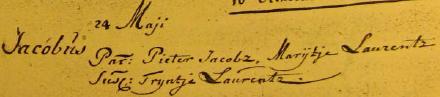 24 Maji
Jacóbus
Par: Pieter Jacobz, Marijtje Laurentz
Susc: Tryntje Laurentz.